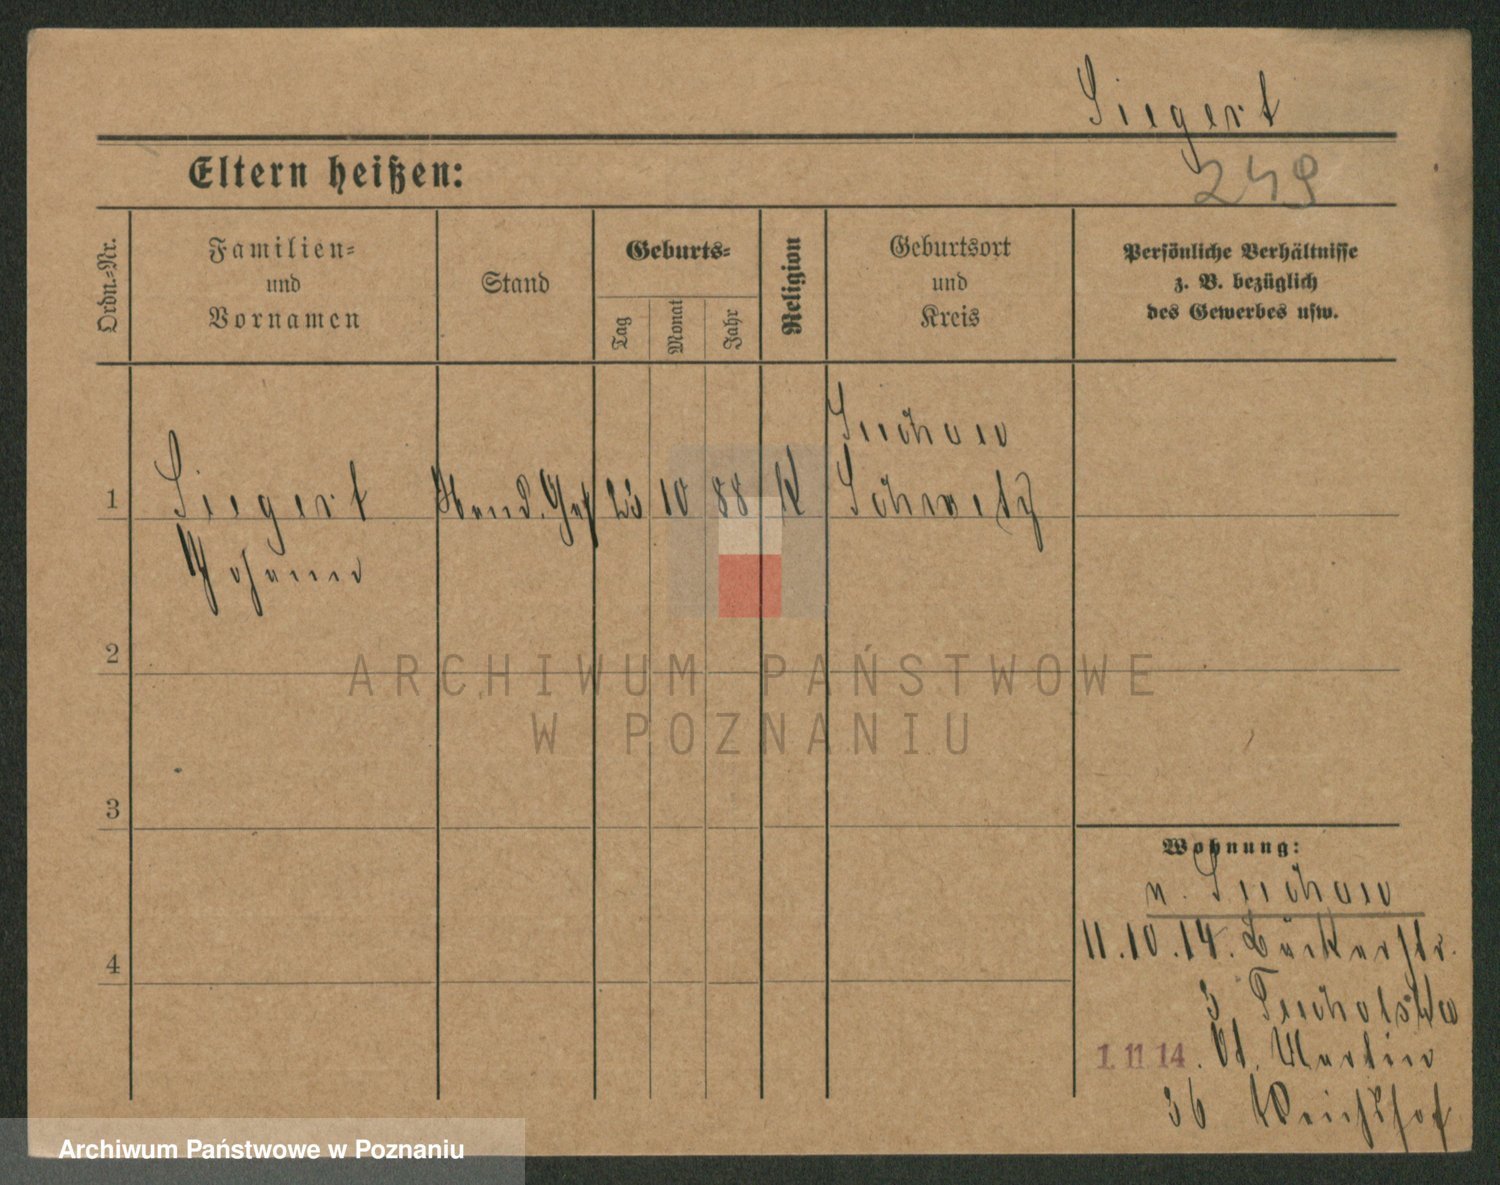 Siegert
249
Eltern heißen:
Ordn.=Nr.
Familien=
und
Vornamen
Stand
Geburts=
Tag
Monat
Jahr
Religion
Geburtsort
und
Kreis
Persönliche Verhältnisse
z. B. bezüglich
des Gewerbes usw.
1
Siegert
Johann
Hand. Geh
23 10 88 K
Suchau
Schwetz
2
3
4
Wohnung:
n. Suchau
11.10.14. Bäckerstr.
3
1. 11 14. St. Martin
36 Reichshof
ARCHIWUM PAŃSTWOWE
W POZNANIU
Archiwum Państwowe w Poznaniu